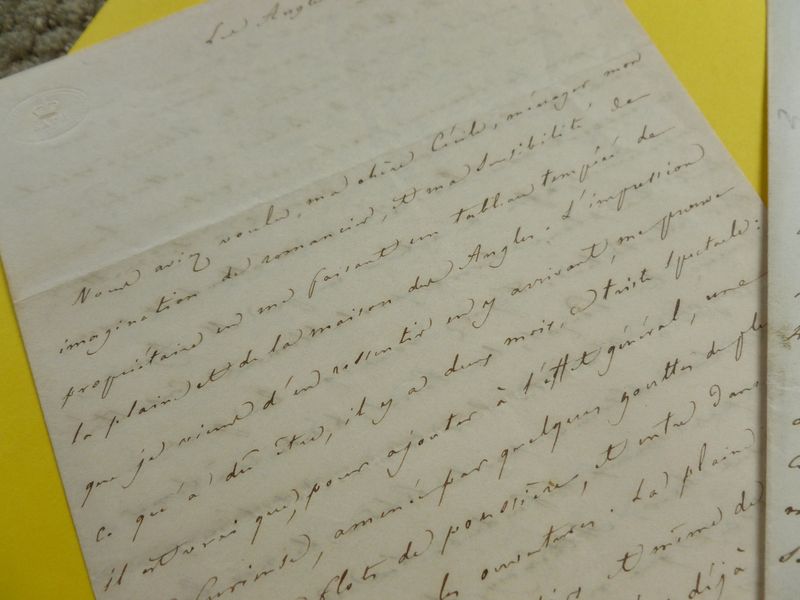 Les Angles
Vous aviez voulu, ma chère Cécile, ménager mon
imagination de romancier, et ma sensibilité de
propriétaire en me faisant un tableau tempéré de
la plaine et de la maison des Angles. L'impression
que je viens d'en ressentir en y arrivant, me prouve
ce qu'a dû être, il y a deux mois, ce triste spectacle:
il est vrai que, pour ajouter à l'effet général, une
furieuse, amené par quelques gouttes de plu
flots de poussière, et entre dans
les ouvertures. La plaine
et même de
déjà